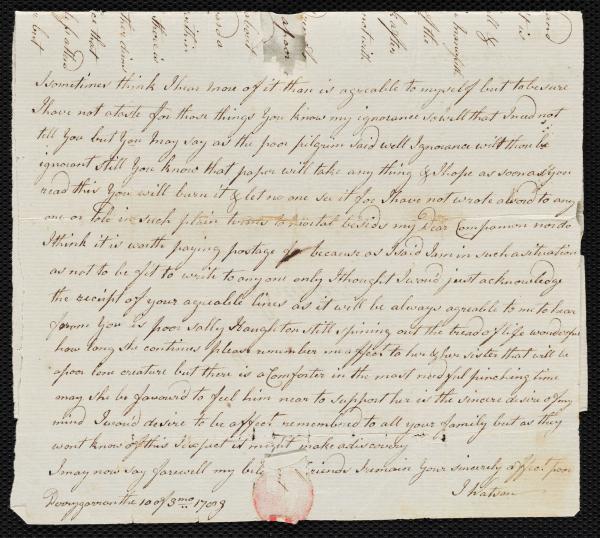 I sometimes think I hear more of it than is agreable to myself but to be sure
I have not a taste for those things You know my ignorance so well that I need not
tell You but You may say as the poor pilgrim said well Ignorance wilt thou be
ignorant still You know that paper will take any thing & I hope as soon as You
read this You will burn it & let no one see it for I have not wrote a word to any
one or told in such plain terms to mortal besids my Dear Companion nor do
I think it is worth paying postage for because as I said I am in such a situation
as not to be fit to write to any one only I thought I woud just acknowledge
the receipt of your agreable lines as it will be always agreable to me to hear
from You is poor Sally Haughton still spining out the tread of life wonderful
how long she continues please remember m affect to her & her Sister that will be
a poor lone creature but there is a Comforter in the most needful pinching time
may she be favour'd to feel him near to support her is the sincere desire of my
mind I woud desire to be affect remembered to all your family but as they
wont know of this I expect it might make a discovery
I may now say farewell my friends I remain Your sincerely affect
J Watson
Derrygarron the 10 of 3mo